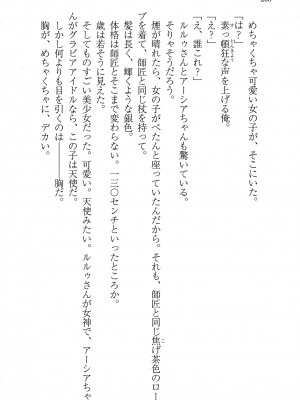 めちゃくちゃ可愛い女の子が、そこにいた。
「は？」
素っ頓狂な声を上げる俺。
「え？」
「え、誰これ？」
ルルゥさんとアーシアちゃんも驚いている。
そりゃそうだろう。
煙が晴れたら、女の子がぺたんと座っていたんだから。それも、師匠と同じ焦げ茶色のロー
ブを着て、師匠と同じ杖を持って。
髪は長く、輝くような銀色。
体格は師匠とそこまで変わらない。一三〇センチといったところか。
歳は若そうに見えた。
そしてものすごい美少女だった。可愛い。天使みたい。ルルゥさんが女神で、アーシアちゃ
んがグラビアアイドルなら、この子は天使だ。
しかし何よりも目を引くのは――――胸だ。
胸が、めちゃくちゃに、デカい。